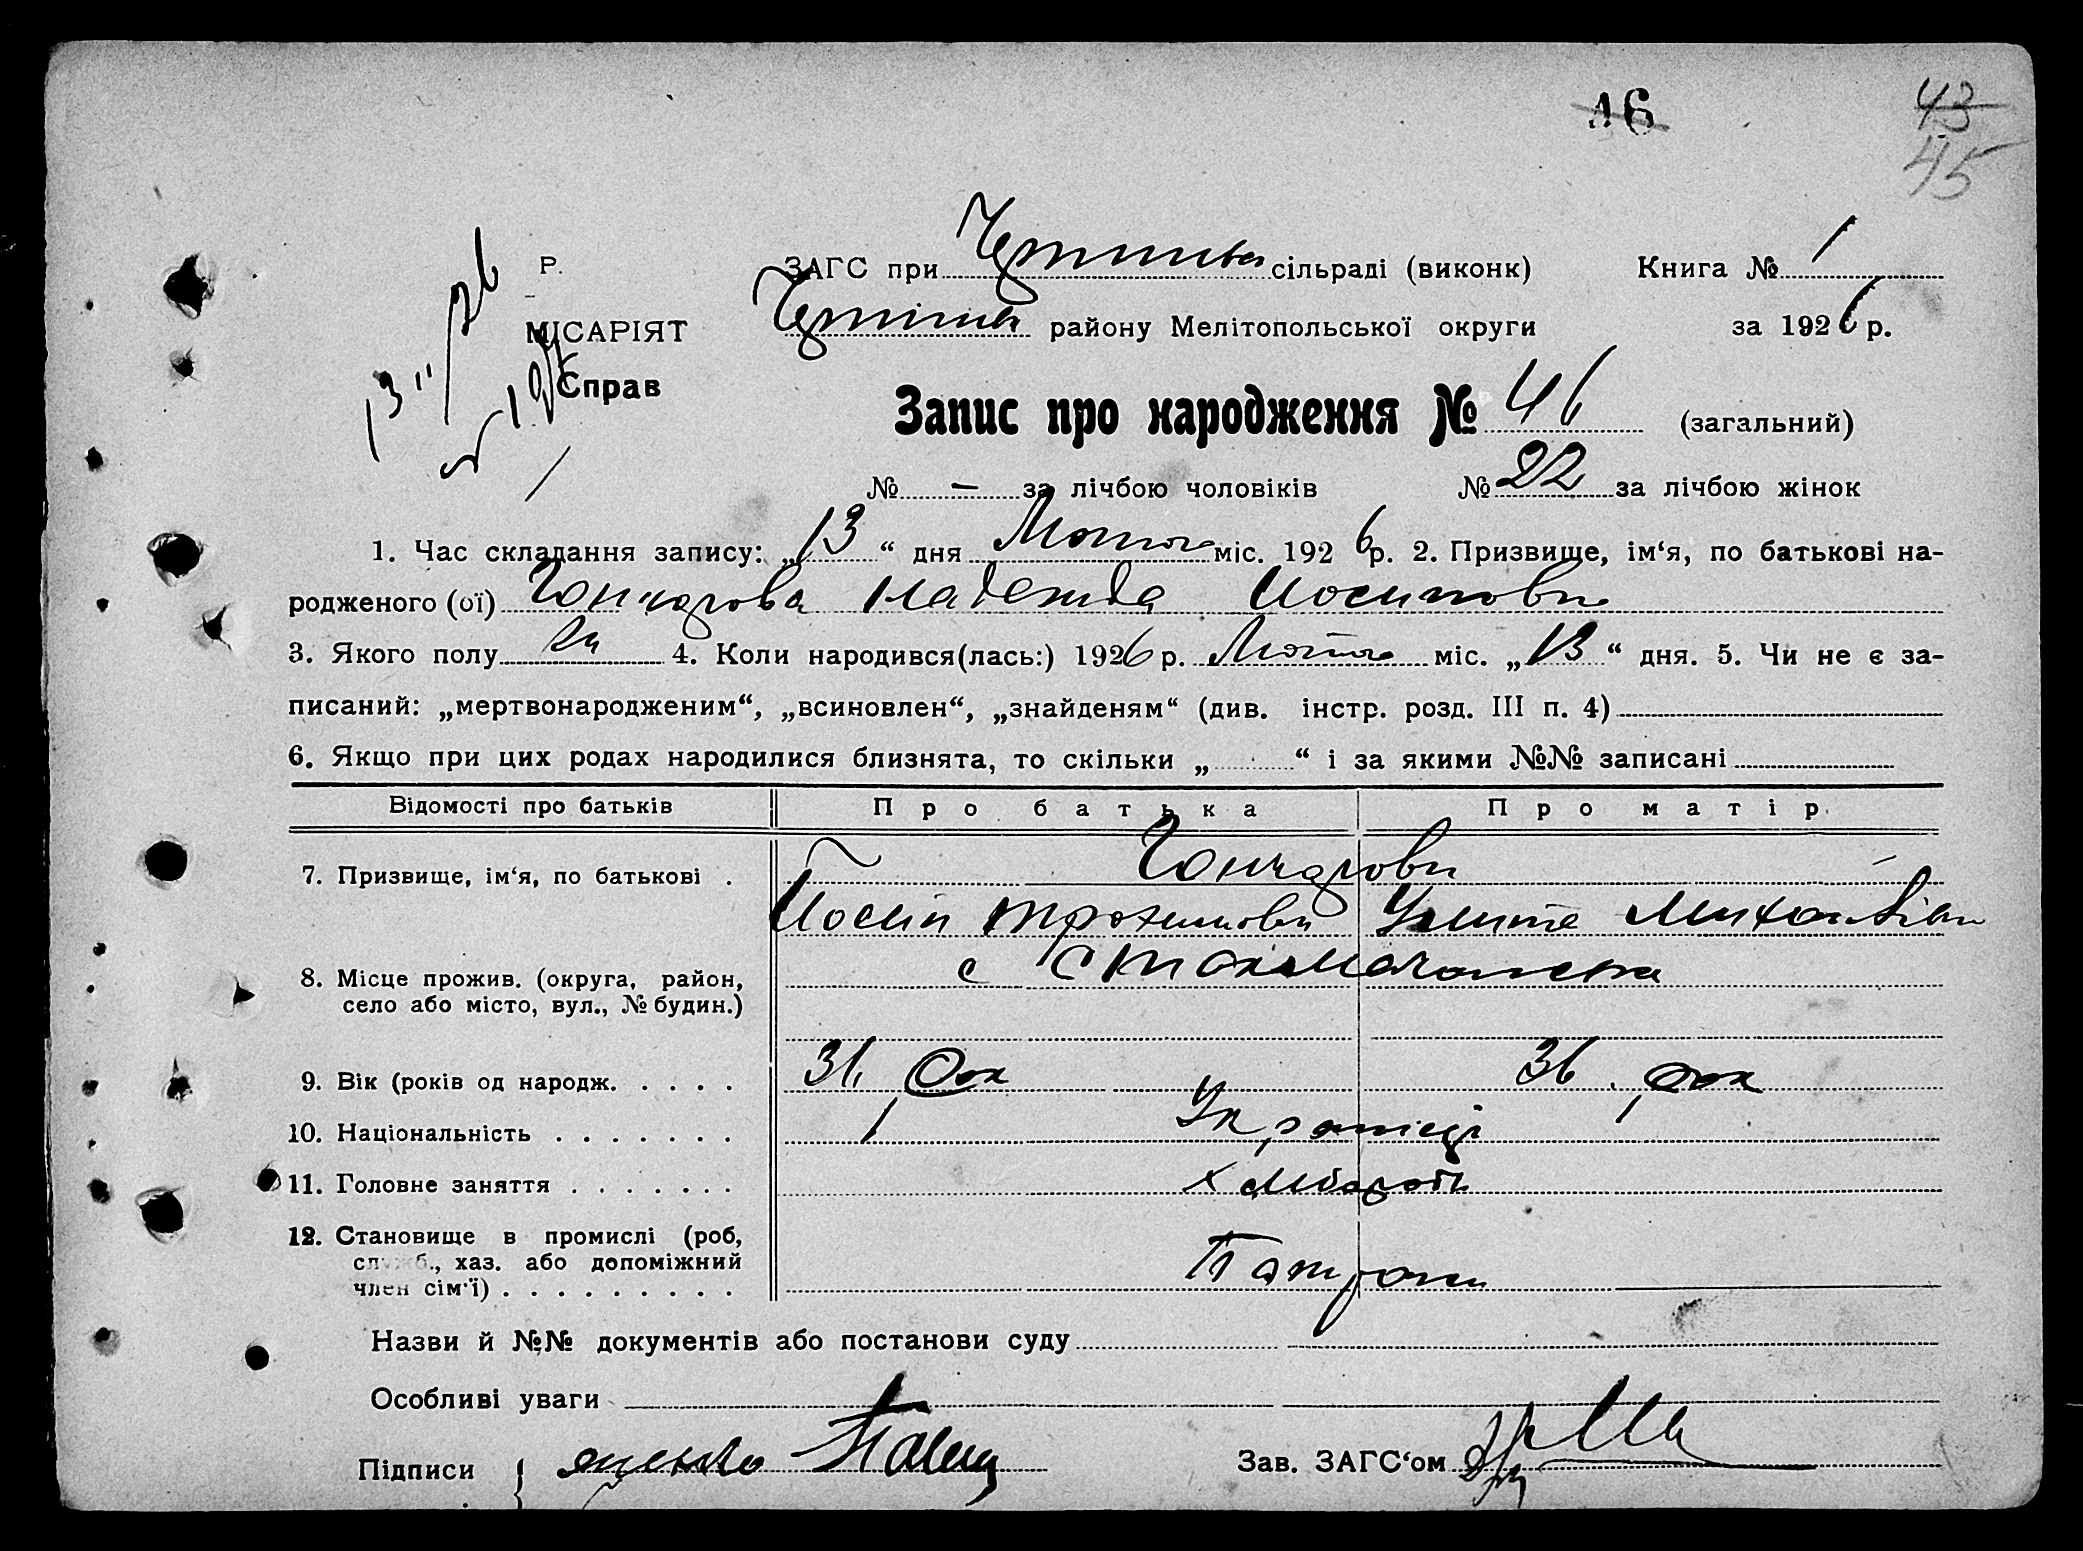 16
43
45
Р. ЗАГС при сільраді (виконк) Книга № 1
МІСАРІЯТ району Мелітопольської округи за 1926 р.
Справ
13"
Запис про народження № 46 (загальний)
№ — за лічбою чоловіків № 22 за лічбою жінок
1. Час складання запису: „13“ дня Лютого міс. 1926 р. 2. Призвище, ім‘я, по батькові на-
родженого (ої) Гончарова Надежда Иосиповна
3. Якого полу 4. Коли народився(лась:) 1926 р. Лютого міс. „13“ дня. 5. Чи не є за-
писаний: „мертвонародженим“, „всиновлен“, „знайденям“ (див. інстр. розд. III п. 4)
6. Якщо при цих родах народилися близнята, то скільки „ “ і за якими №№ записані
Відомості про батьків Про батька Про матір
7. Призвище, ім‘я, по батькові . Гончарови
Иосип Михайлівна
8. Місце прожив. (округа, район, с
село або місто, вул., № будин.)
9. Вік (років од народж. . . . . 36
10. Національність . . . . . . . Українці
11. Головне заняття . . . . . . . хлібороби
12. Становище в промислі (роб,
служб., хаз. або допоміжний
член сім‘ї) . . . . . . . . .
Назви й №№ документів або постанови суду
Особливі уваги
Підписи { Зав. ЗАГС‘ом